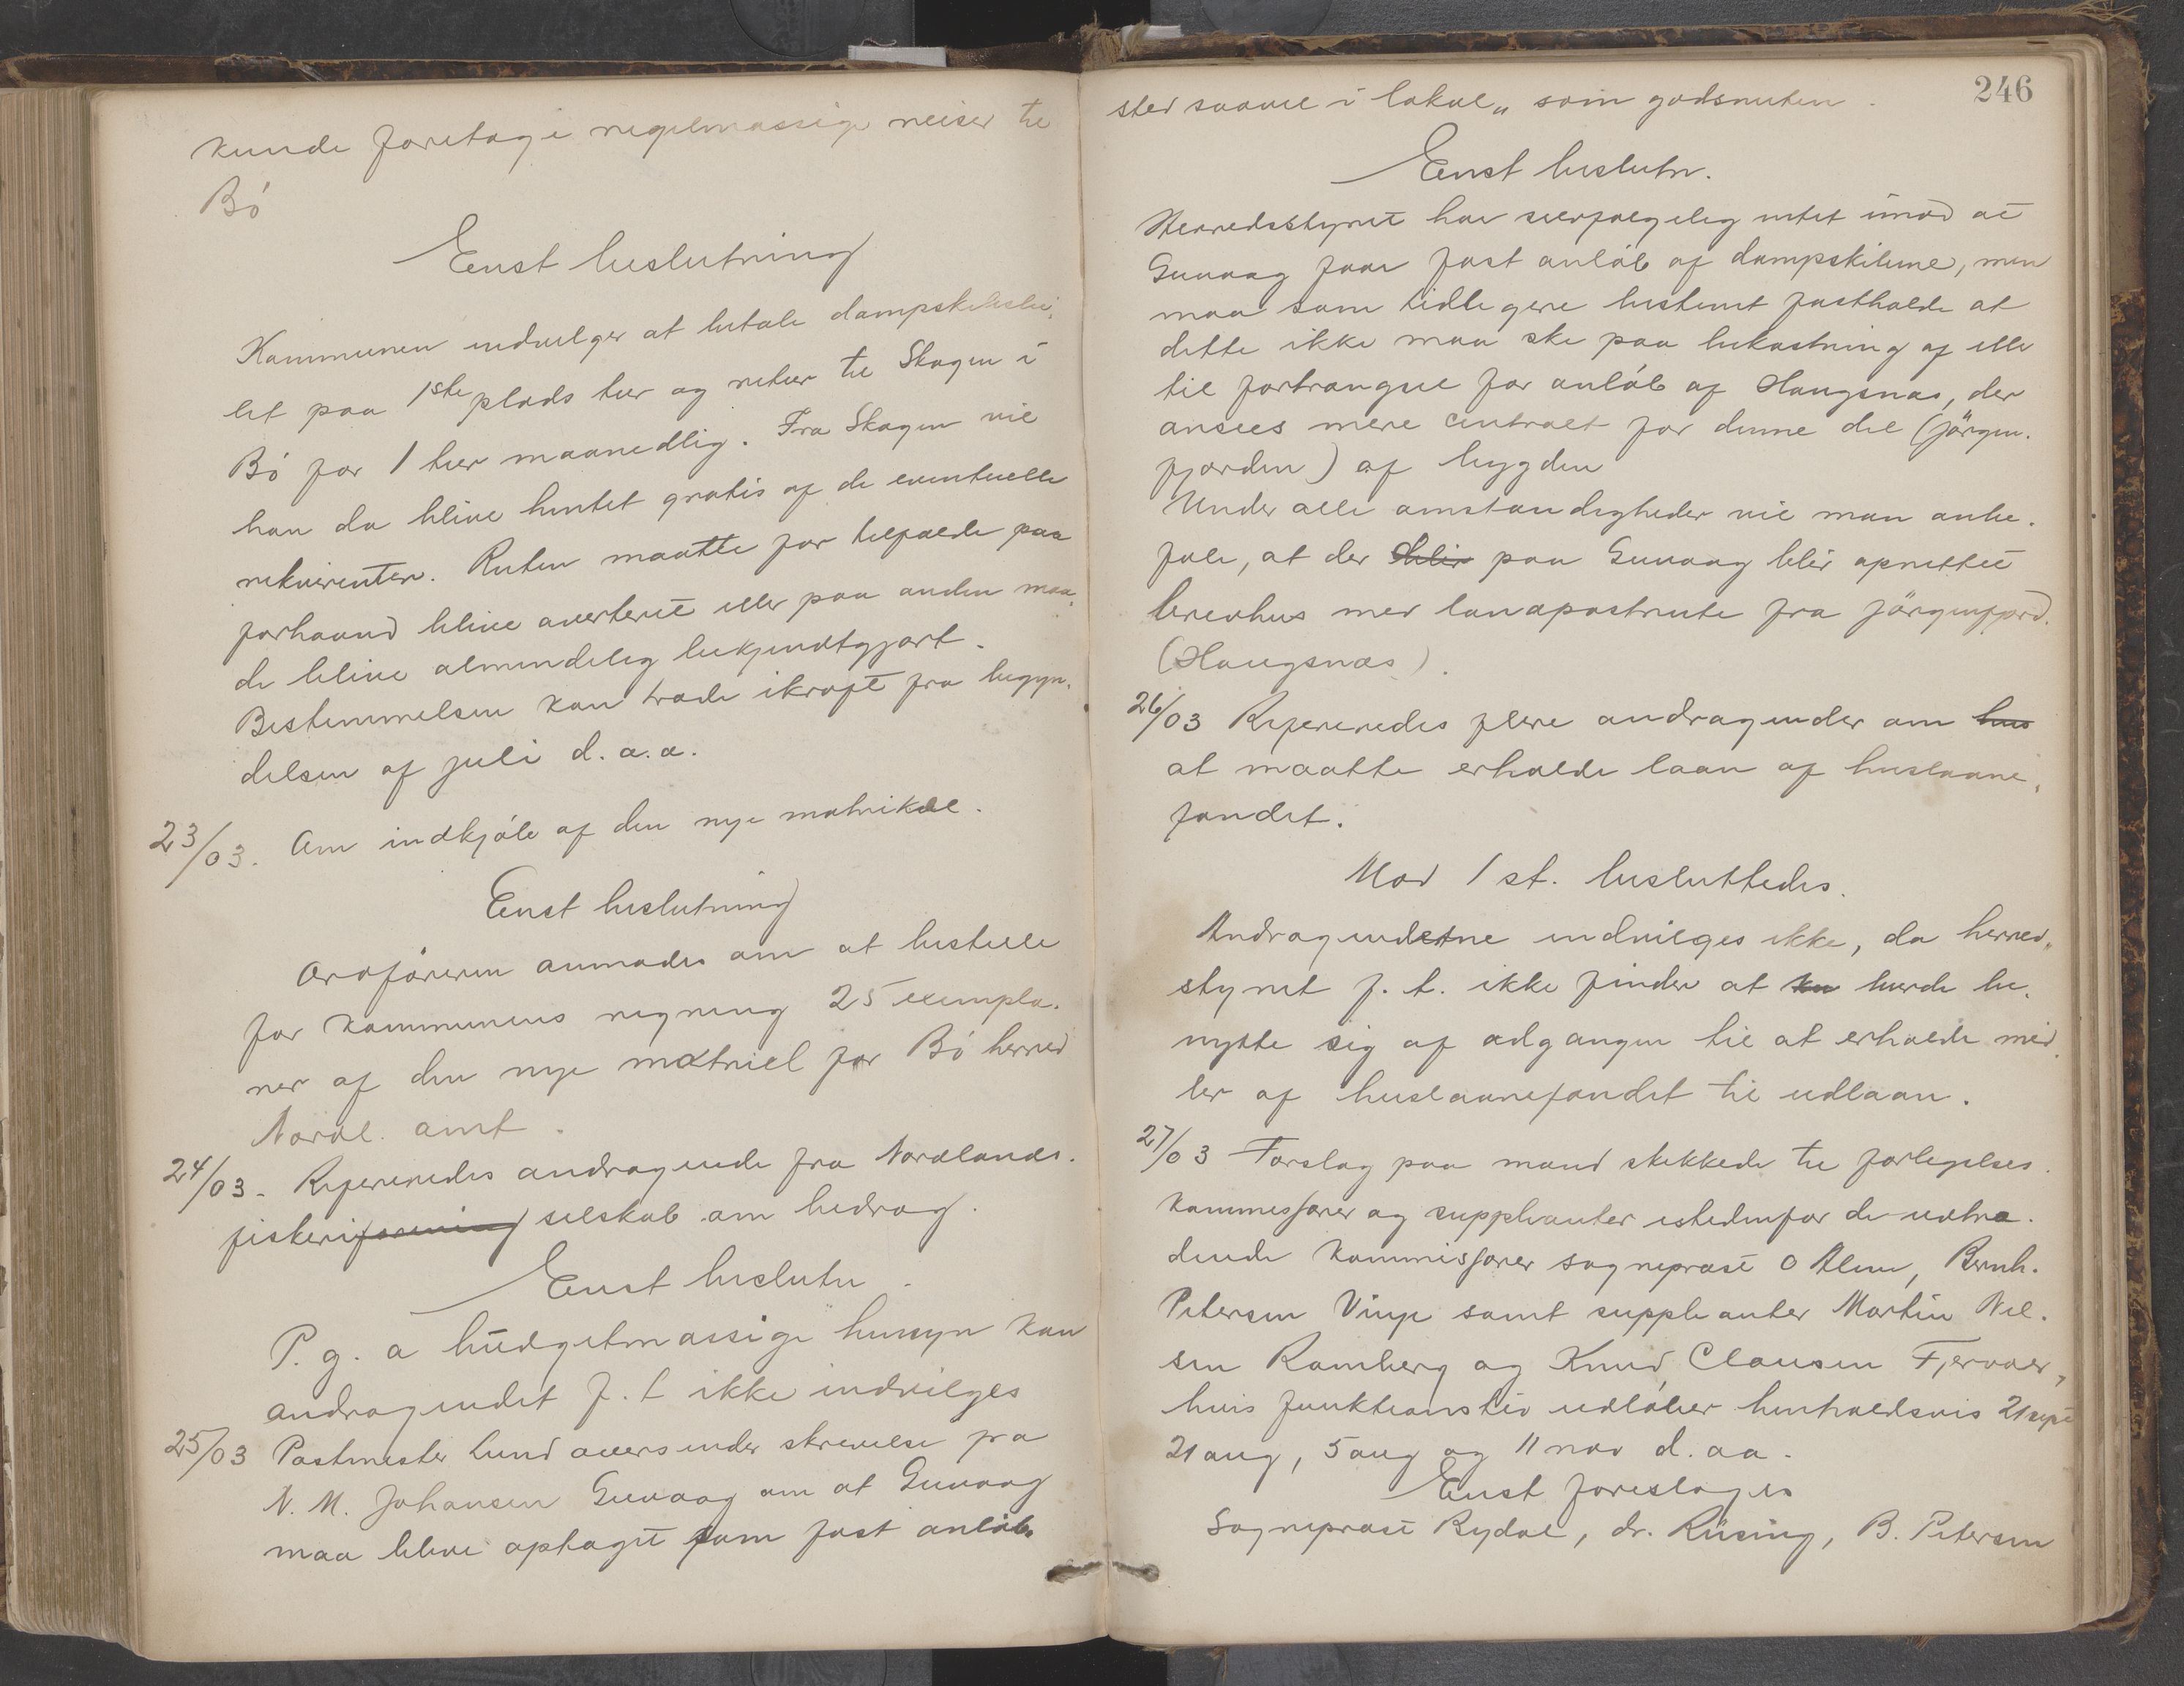 kunde foretage regelmæssige reiser til
Bö
Enst beslutning
Kommunen indvilger at betale dampskibsbil,
let paa 1ste plads tur og retur til Skagen i
Bö for 1 tur maanedlig. Fra Skagen vil
han da blive hentet gratis af de eventuelle
rekvirenter. Ruten maatte for tilfælde paa
forhaand blive averteret eller paa anden maa,
de blive almindelig bekjendtgjort.
Bestemmelsen kan træde ikraft fra begyn,
delsen af juli d. a.a.
23/03. Om indkjöb af den nye matrikul.
Enst beslutning
Ordföreren anmodes om at bestille
for kommunens regning 25 exempla.
rer af den nye matriel for Bö herred
Nordl. amt.
24/03. Refereredes andragende fra Nordlands.
fiskeriforening selskab om bidrag.
Enst beslutn.
P. g. a büdgetmæssige hensyn kan
andragendet f. t ikke indvilges
25/03 Postmester Lund oversender skrivelse fra
N. M. Johansen Guvaag om at Guvaag
maa blive optaget som fast anlöbs
246
sted saavel i lokal„ som godsruten.
Enst beslutn.
Herredsstyret har selvfølgelig intet imod at
Guvaag faar fast anlöb af dampskibene, men
maa som tidligere bestemt fastholde at
dette ikke maa ske paa bekostning af eller
til fortrængsel for anlöb af Haugsnæs, der
ansees mere centralt for denne del (jörgen.
fjorden) af bygden
Under alle omstændigheder vil man anbe.
fale, at der blir paa Guvaag blir oprettet
brevhus med landpostrute fra Jörgenfjord.
(Haugsnæs).
26/03 Refereredes flere andragender om hus
at maatte erholde laan af huslaane,
fondet.
Mod 1 st. besluttedes.
Andragendetne indvilges ikke, da herred„
styret f. t. ikke finder at ku burde be,
nytte sig af adgangen til at erholde mid,
ler af huslaanefondet til udlaan.
27/03 Forslag paa mænd skikkede til forligelses.
kommisfærer og suppleanter istedenfor de udtræ.
dende kommisfærer sogneprest O Alme, Bernh.
Petersen Vinje samt suppleanter Martin Nil.
sen Ramberg og Knud Clausen Fjærvær,
hvis funktionstid udlöber henholdsvis 21 sept
21 aug, 5 aug og 11 nov d. aa.
Enst foreslages
Sogneprest Rydal, dr. Rüsing, B. Petersen